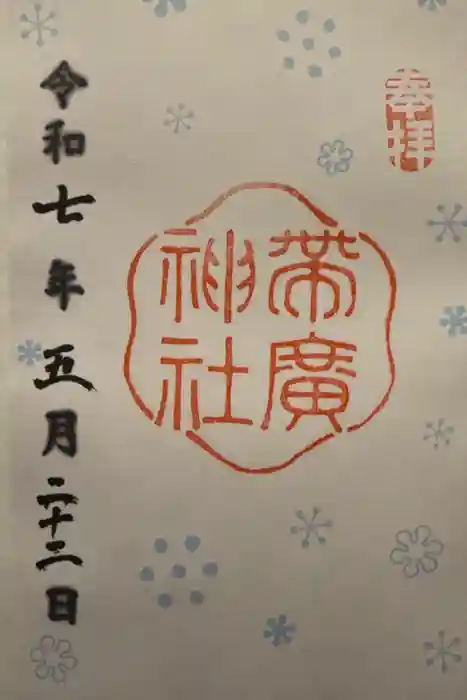 奉拝
帯廣
神社
令和七年五月二十二日